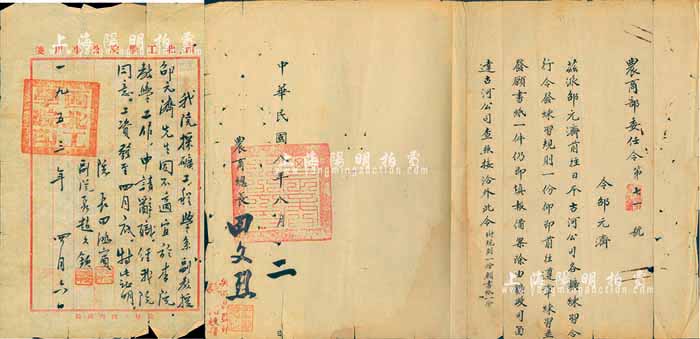 農商部委任令第七一號
令邵元濟
茲派邵元濟前往日本古河公司各礦練習合
行令發練習規則一份仰即前往遵章練習並
發願書紙一件仍即填報備案除由礦政司函
達古河公司查照接洽外此令 附規則一份願書紙一份
中華民國八年八月十二日
農商總長 田文烈
我院採礦工程學系副教授
邵元濟先生因不適宜於本院
教學工作，申請辭職，經我院
同意。工資發至四月底，特此証明。
院長 田鴻賓
副院長 趙玉振
一九五三年四月六日
上海陽明拍賣
yangmingauction.com
上海陽明拍賣
yangmingauction.com